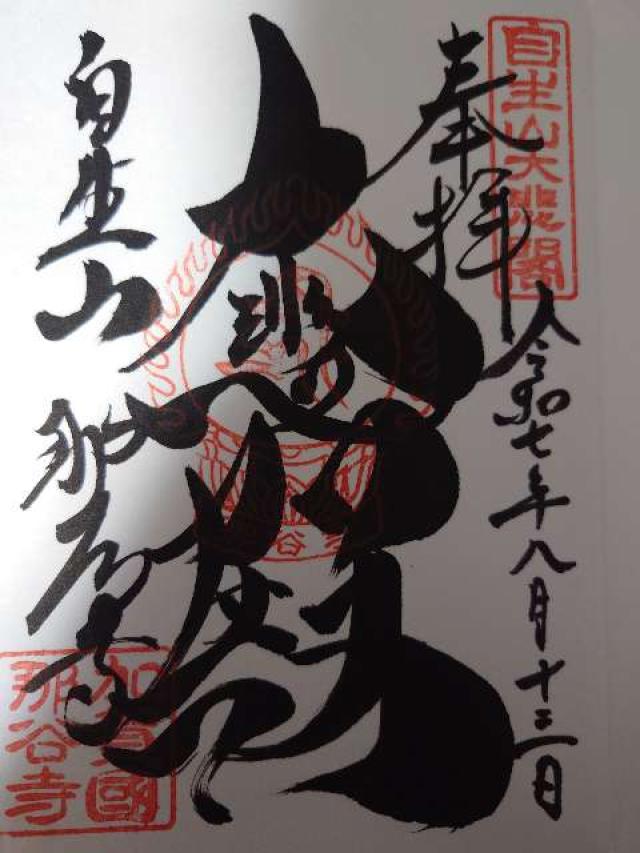 自生山大悲閣
奉拝
令和七年八月十三日
大悲
自生山 那谷寺
加賀國
那谷寺